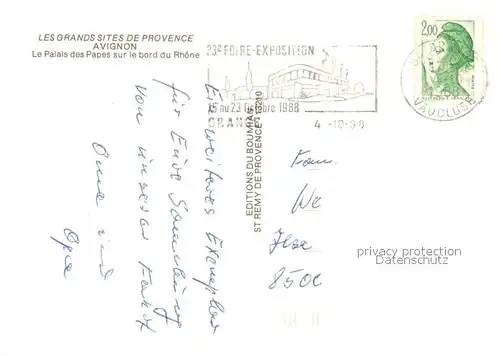 LES GRANDS SITES DE PROVENCE
AVIGNON
Le Palais des Papes sur le bord du Rhône
23e FOIRE-EXPOSITION
15 au 23 Octobre 1988
ORANGE
4-10-88
2,00
VAUCLUSE
EDITIONS DU BOUMIAN
ST REMY DE PROVENCE
Ein weiteres Exemplar
für Eure Sammlung
von unserer Fahrt
Oma und
Opa
Fam.
We
850
privacy protection
Datenschutz